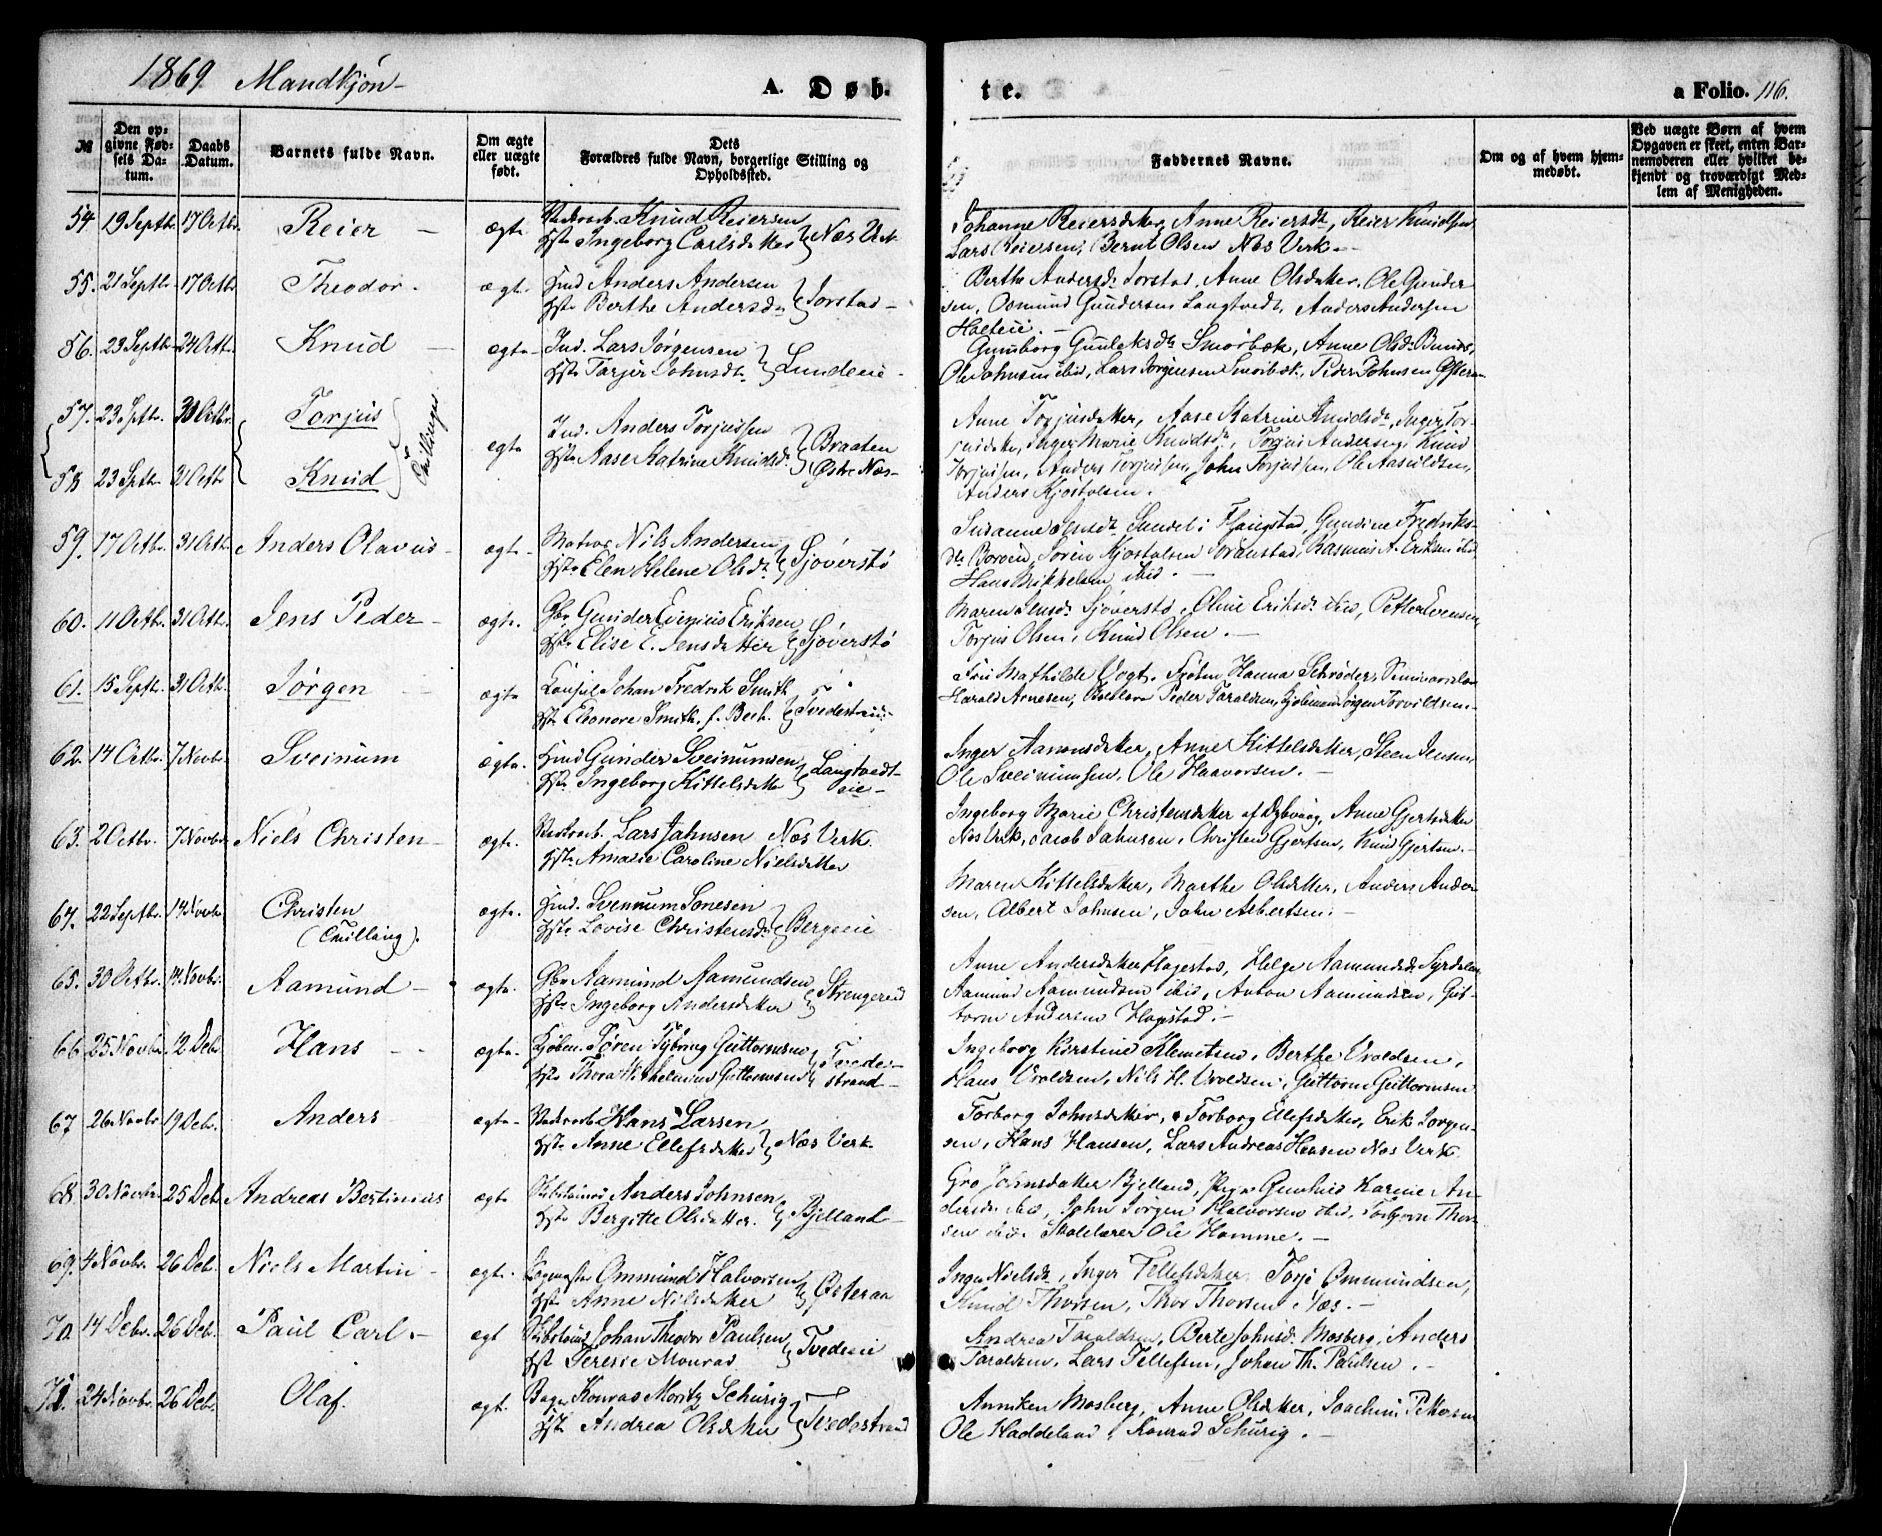 1869 Mandkjøn
A. Døbte.
a Folio. 116.
№
Den opgivne Fødsels Datum.
Daabs Datum.
Barnets fulde Navn.
Om ægte eller uægte født.
Dets Forældres fulde Navn, borgerlige Stilling og Opholdssted.
Faddernes Navne.
Om og af hvem hjemmedøbt.
Ved uægte Børn af hvem Opgaven er skeet, enten Barnemoderen eller hvilket bekjendt og troværdigt Medlem af Menigheden.
54. 19 Septbr. 17 Octbr. Reier – ægte Knud Reiersen
Hst. Ingeborg Carlsdatter } Næs Verk
Johanne Reiersdatter, Anne Reiersdt., Reier Knudsen
Lars Reiersen, Bernt Olsen Næs Verk. –
55. 21 Septbr. 17 Octbr. Theodor. ægte. Hmd Anders Andersen
Hst. Berthe Andersd. } Jorstad –
Berthe Andersd. Jorstad, Anne Olsdatter, Ole Gunder
sen, Osmund Gundersen Langtvedt, Anders Andersen
56. 23 Septbr. 24 Octbr. Knud – ægte Ind. Lars Jørgensen
Hst. Tarjer Johnsdt. } Lundeeie –
Gunborg Gunleksdt. Smørbæk, Anne Olsd.
Ole Johnsen ibid, Lars Jørgensen Smørbæk, Peder Johnsen
57. 23 Septbr. 30 Octbr. Torjus
Tvillinger
ægte Ind. Anders Torjussen
58 23 Septbr. 31 Octbr. Knud
Hst. Aase Katrine Knudsd. } Braaten
Østre Næs –
Anne Torjusdatter, Aase Katrine Knudsdt., Inger Tor-
jusdatter, Inger Marie Knudsdt., Torjus Andersen, Knud
Torjussen, Anders Torjussen, John Torjussen, Ole Aasuldsen,
Anders Kjøstolsen.
59. 17 Octbr. 31 Octbr. Anders Olavus – ægte. Matros Nils Andersen
Hst. Elen Helene Olsdt. } Sjøverstø
Susanne Gundine Fredriks-
dt. Borøen, Søren Kjøstolsen Rasmus A. Eriksen ibid,
Hans Mikkelsen ibid. –
60. 11 Octbr. 31 Octbr. Jens Peder – ægte. Gbr. Gunder Evenius Eriksen
Hst. Elise E. Jensdatter } Sjøverstø
Maren Jensd. Sjøverstø, Oline Eriksd. ibid, Petter Evensen,
Torjus Olsen, Knud Olsen. –
61. 15 Septbr. 31 Octbr. Jørgen – ægte Konsul Johan Fredrik Smith
Hst. Eleonore Smith, f. Bech. } Tvedestrand
Fru Mathilde Vogt, Frøken Hanna Schrøder,
Harald Arnesen, Peder Taraldsen, Kjøbmand Jørgen Torvildsen. –
62. 14 Octbr. 7 Novbr. Sveinum ægte. Hmd Gunder Sveinumsen
Hst. Ingeborg Kittelsdatter } Langtvedt-
eie –
Inger Aanonsdatter, Anne Kittelsdatter, Steen Jensen,
Ole Sveinumsen, Ole Haavorsen. –
63. 2 Octbr. 7 Novbr. Niels Christen – ægte. Lars Jahnsen Næs Verk
Hst. Amalie Caroline Nielsdatter
Ingeborg Marie Christensdatter af Dybvaag, Anne Gjertsdatter
Næs Verk, Jacob Jahnsen, Christen Gjertsen, Knud Gjertsen. –
64. 22 Septbr. 14 Novbr. Christen
(Tvilling).
ægte. Hmd. Svennum Tønesen
Hst. Lovise Christensd. } Bergseie
Maren Kittelsdatter, Marthe Olsdatter, Anders Ander
sen, Albert Johnsen, John Albertsen. –
65. 30 Octbr. 14 Novbr. Aamund – ægte. Gbr. Aamund Aamundsen
Hst. Ingeborg Andersdatter } Strengereid
Anne Andersdatter Hagestad, Helge Aamundsd. Syrdalen
Aamund Aamundsen ibid, Anton Aamundsen, Gut-
torm Andersen Hagestad. –
66. 25 Novbr. 12 Debr. Hans – – ægte. Kjøbm. Søren Tybring Guttormsen
Hst. Thora Guttormsen } Tvede-
strand –
Ingeborg Kirstine Klemetsen, Berthe Uvoldsen,
Hans Uvoldsen, Nils H. Uvoldsen, Guttorm Guttormsen
67 26 Novbr. 19 Debr. Anders – ægte – Hans Larsen
Hst. Anne Ellefsdatter } Næs Verk
Torborg Johnsdatter, Torborg Ellefsdatter, Erik Jørgen-
sen, Hans Hansen, Lars Andreas Hansen Næs Verk.
68. 30 Novbr. 25 Debr. Andreas Bertinius ægte Anders Johnsen
Hst. Bergitte Olsdatter. } Bjelland –
Gro Johnsdatter Bjelland, Pige Gunhild Karine An-
dersd. ibid, John Jørgen Halvorsen ibid, Torbjørn Thor-
sen ibid. Skolelærer Ole Homme. –
69. 4 Novbr. 26 Debr. Niels Martin – ægte. Ommund Halvorsen
Hst. Anne Nilsdatter } Østeraa
Inger Nielsdt., Inger Tellefsdatter, Torje Ommundsen,
Knud Thorsen, Thor Thorsen, Næs. –
70. 14 Debr. 26 Debr. Paul Carl. – ægt Johan Theodor Paulsen
Hst. Teresie Monrad } Tvedeeie
Andrea Taraldsen, Berte Johnsd. Mosberg, Anders
Taraldsen, Lars Tellefsen, Johan Th. Paulsen. –
71. 24 Novbr. 26 Debr. Olaf. ægt. Bager Konrad Moritz Schürig
Hst. Andrea Olsdatter } Tvedestrand
Anniken Mosberg, Anne Olsdatter, Joachim Pettersen
Ole Haddeland, Konrad Schürig. –